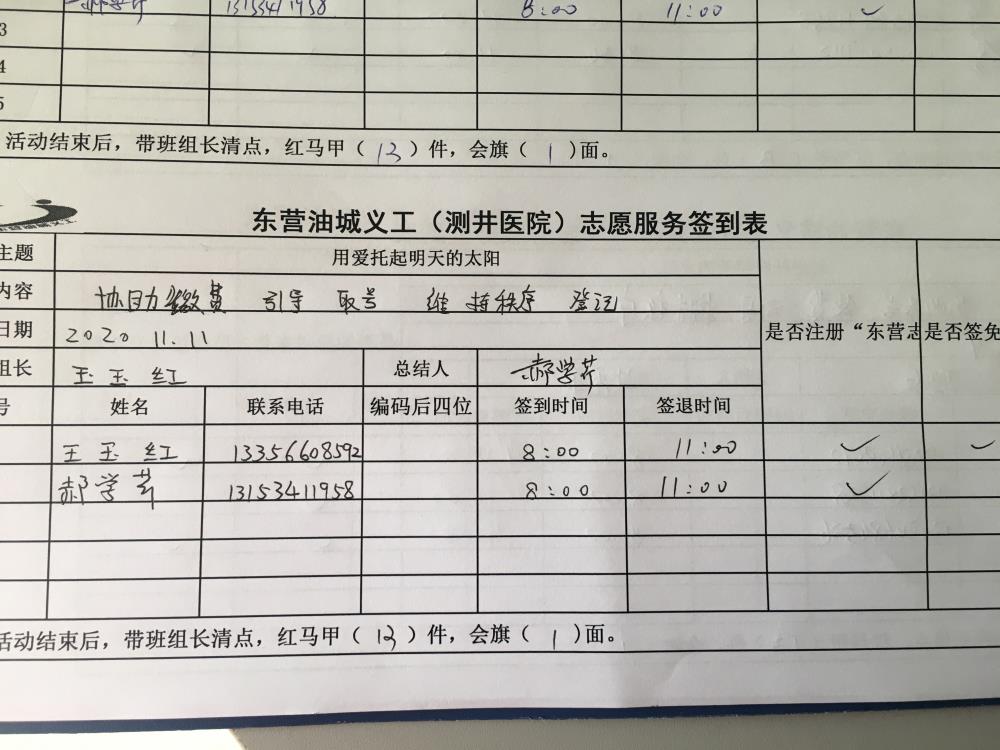 郝学芹 13153411958 8:00 11:00 ✓
3
4
5
活动结束后，带班组长清点，红马甲（13）件，会旗（1）面。
东营油城义工（测井医院）志愿服务签到表
主题 用爱托起明天的太阳
内容 协助缴费 引导 取号 维持秩序 登记
日期 2020 11.11 是否注册“东营志 是否签免
组长 王玉红 总结人 郝学芹
号 姓名 联系电话 编码后四位 签到时间 签退时间
王玉红 13356608592 8:00 11:00 ✓ ✓
郝学芹 13153411958 8:00 11:00 ✓
活动结束后，带班组长清点，红马甲（13）件，会旗（1）面。